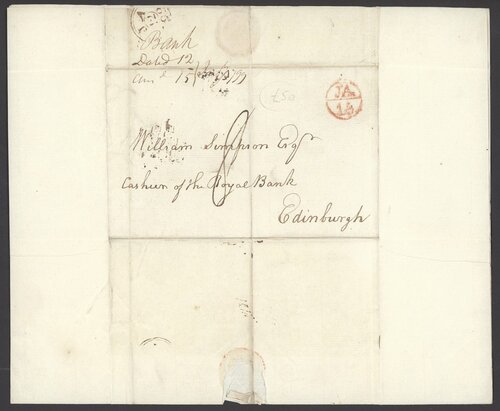 Bank
Dated 12
Ans.d 15
£50
JA
14
William Simpson Esqr
Cashier of the Royal Bank
Edinburgh